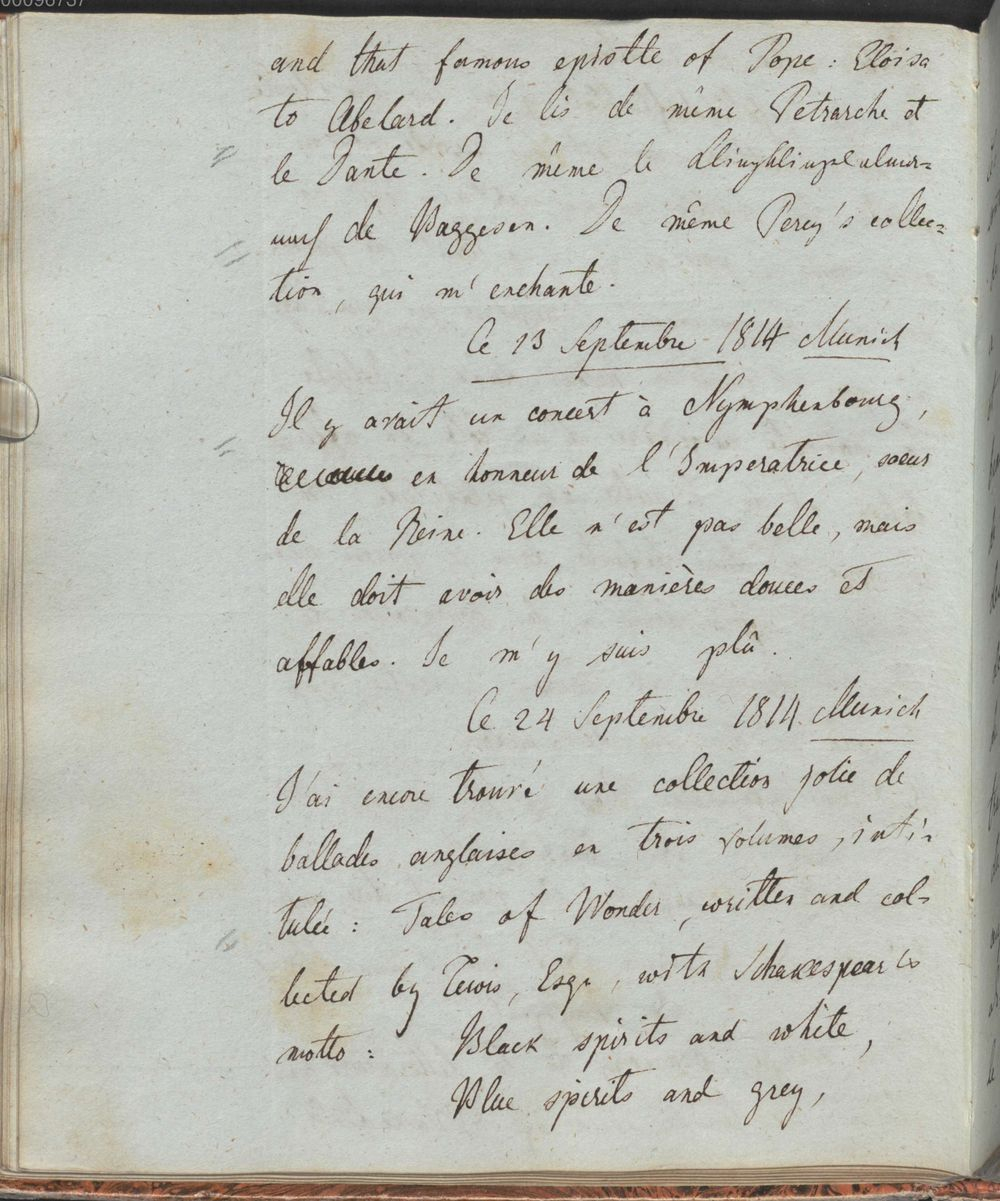 00096737
and that famous epistle of Pope: Eloisa
to Abelard. Je lis de même Petrarche et
le Dante. De même le Klingklingelalma-
nach de Baggesen. De même Percy's collec-
tion, qui m'enchante.
Ce 13 Septembre 1814 Munich
Il y avait un concert à Nymphenbourg,
en honneur de l'Imperatrice, soeur
de la Reine. Elle n'est pas belle, mais
elle doit avoir des manières douces et
affables. Je m'y suis plû.
Ce 24 Septembre 1814. Munich
J'ai encore trouvé une collection jolie de
ballades anglaises en trois volumes, inti-
tulée: Tales of Wonder, written and col-
lected by Lewis, Esqr, with Schakespear's
motto: Black spirits and white,
Blue spirits and grey,